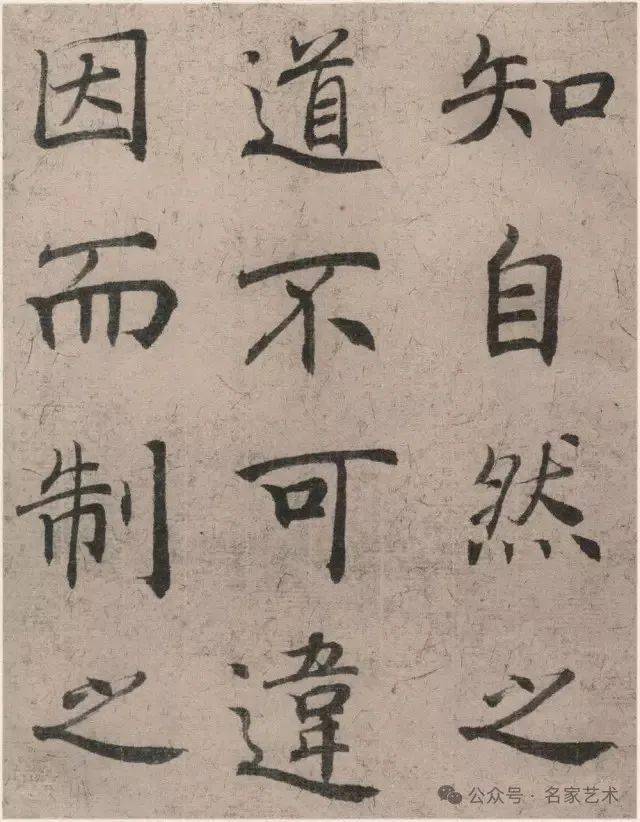 知自然之
道不可違
因而制之
公众号·名家艺术